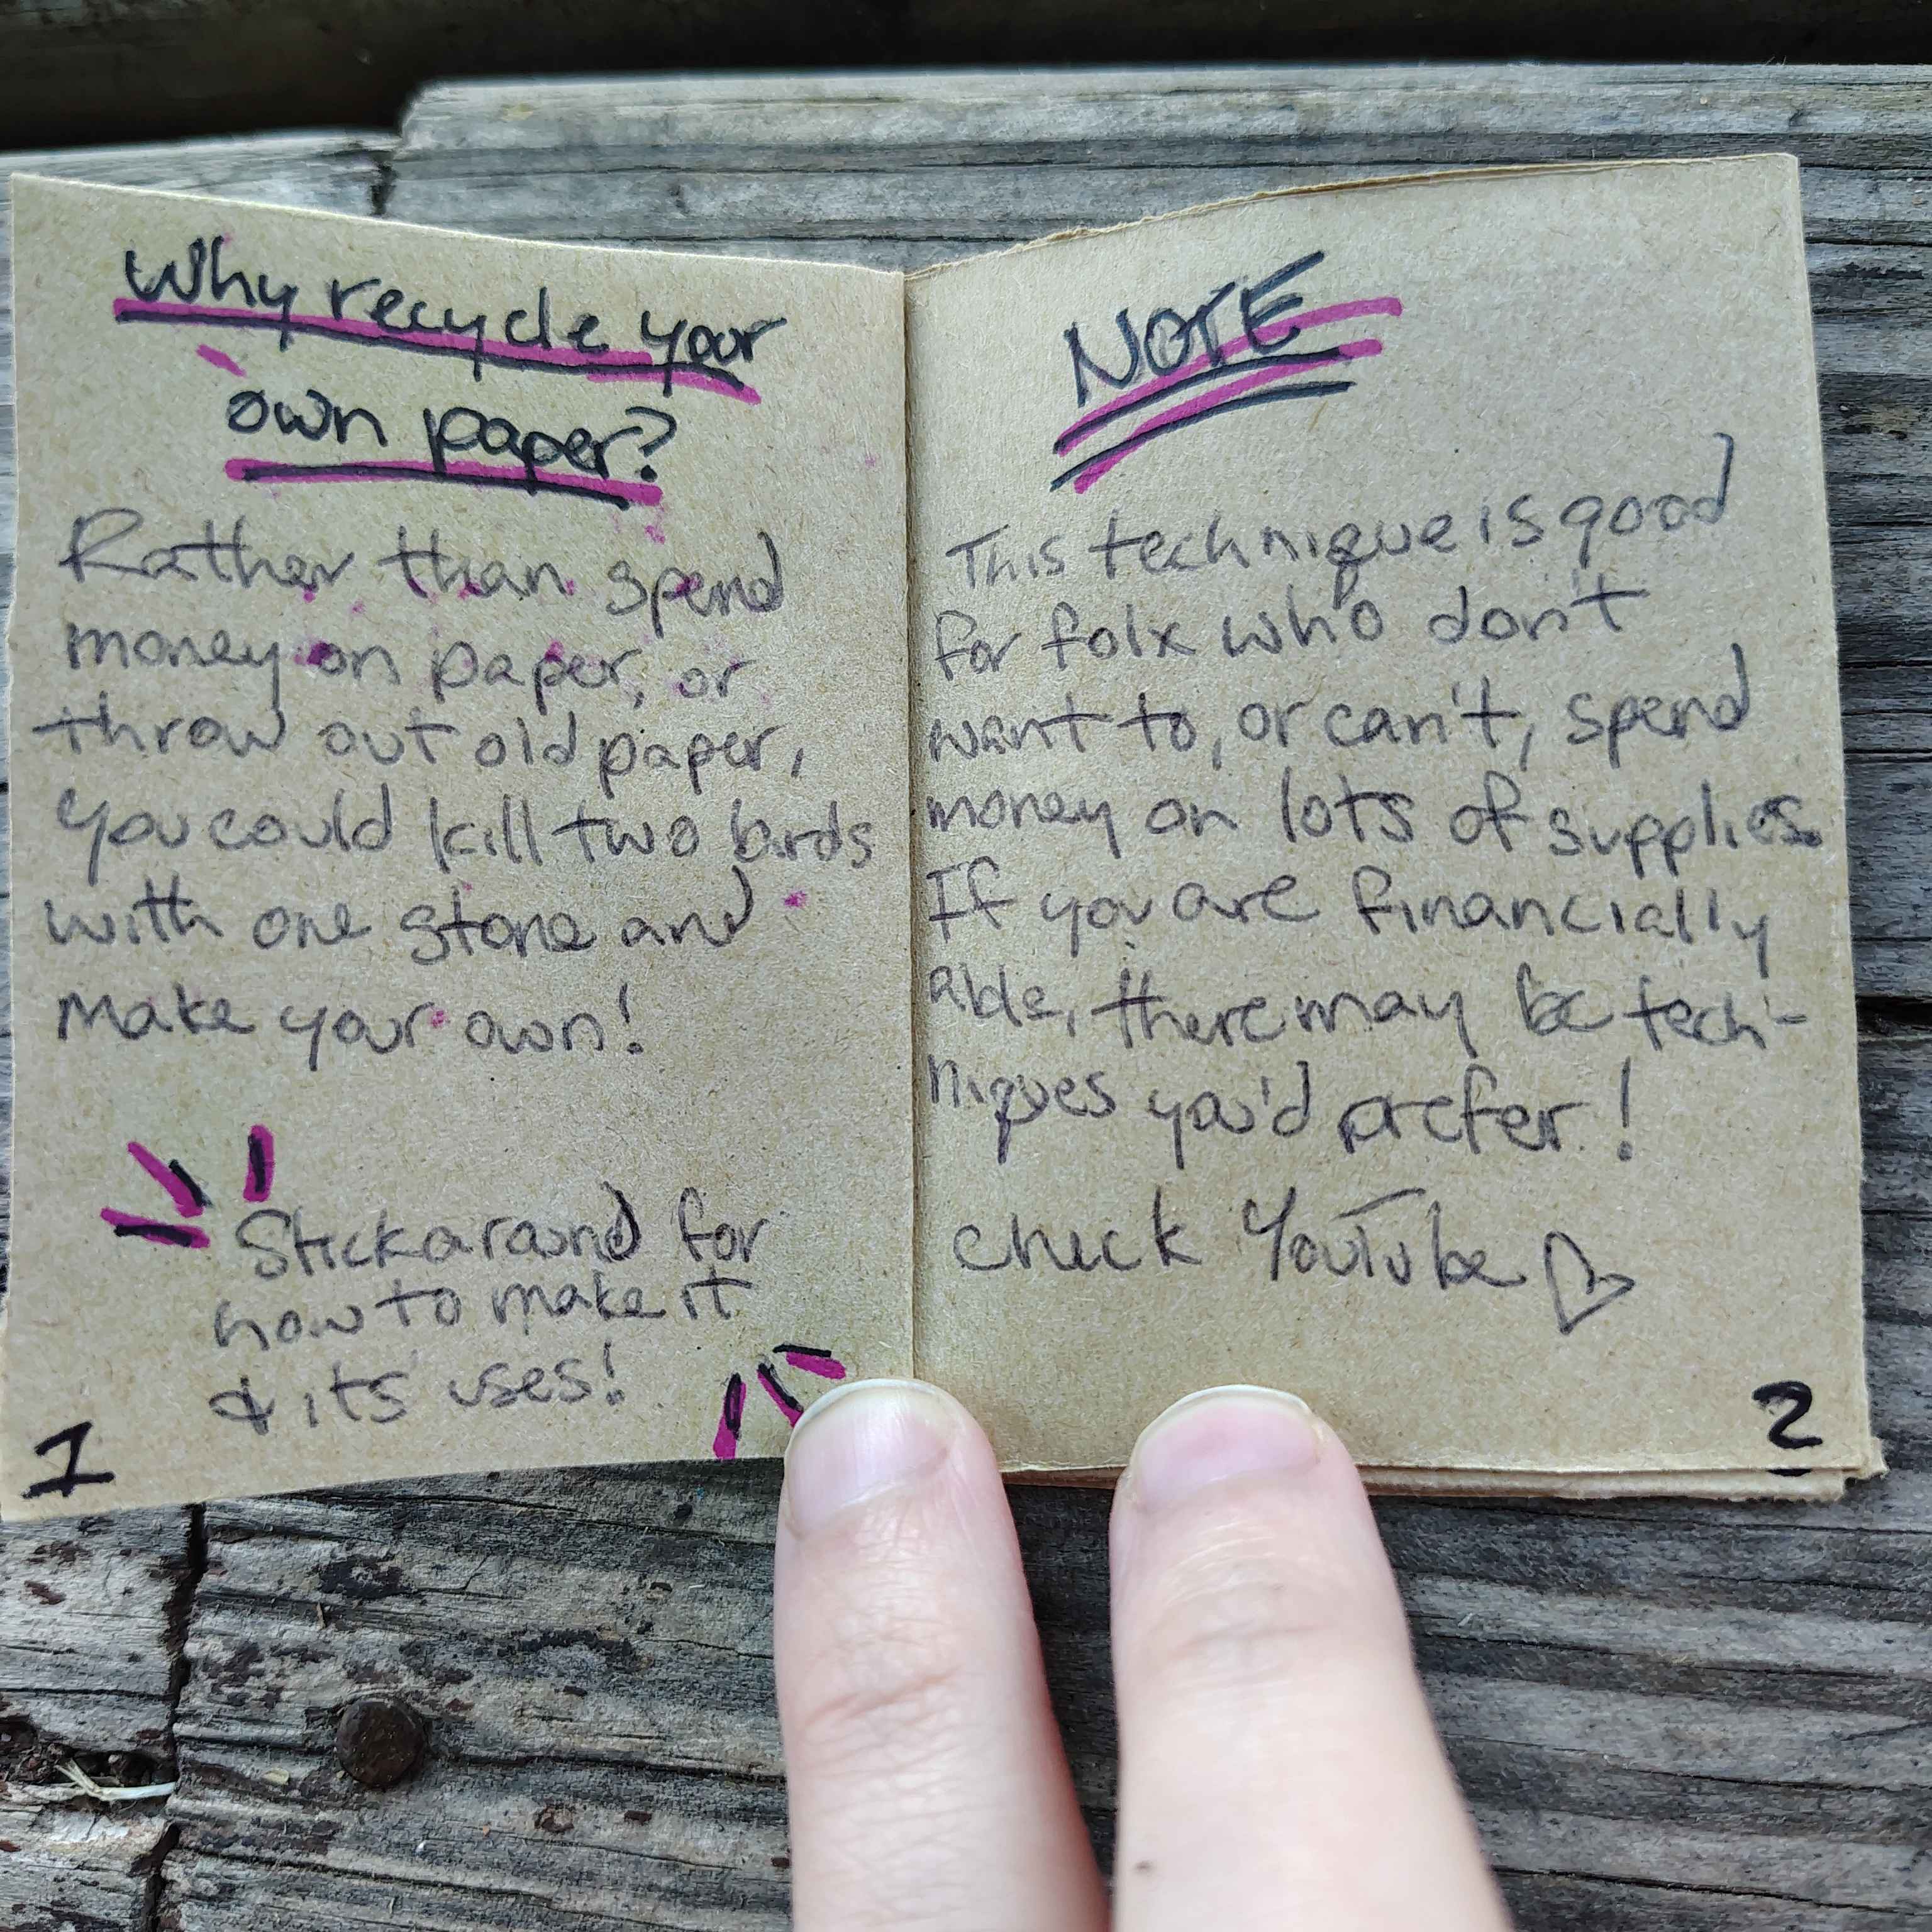 Why recycle your
own paper?
Rather than spend
money on paper, or
throw out old paper,
you could kill two birds
with one stone and
make your own!
Stick around for
how to make it
& its uses!
1
NOTE
This technique is good
for folx who don't
want to, or can't, spend
money on lots of supplies.
If you are financially
able, there may be tech-
niques you'd prefer!
check YouTube ♡
2